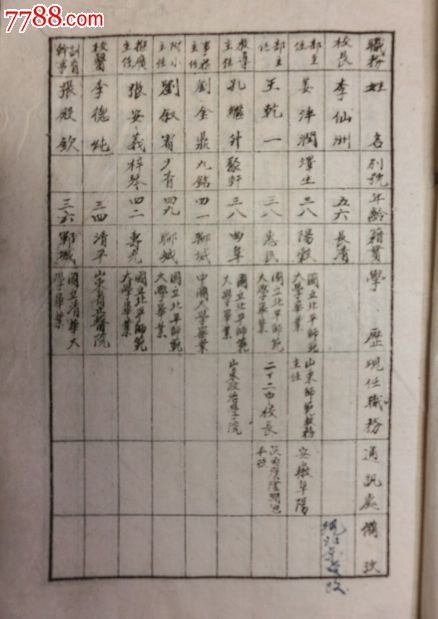 7788.com
職務 姓名 別號 年齡 籍貫 學歷 現任職務 通訊處 備改
校長 李仙洲 五六 長清
部主任 姜沣潤 濟生 三八 陽穀 國立北平師範大學畢業 山東師範教務主任 安徽阜陽
部主任 王乾一 三八 惠民 國立北平師範大學畢業 二十二中校長
教導主任 孔繼升 聚軒 三八 曲阜 國立北平師範大學畢業 山東政治學院
事務主任 劉金鼎 九銘 四一 聊城 中國大學畢業
附小主任 劉叙賓 四九 聊城 國立北平師範大學畢業
推廣主任 張安義 梓琴 四二 壽光 國立北平師範大學畢業
校醫 李德純 三四 清平 山東省立醫院
訓育幹事 張殿欽 三六 鄆城 國立清華大學畢業